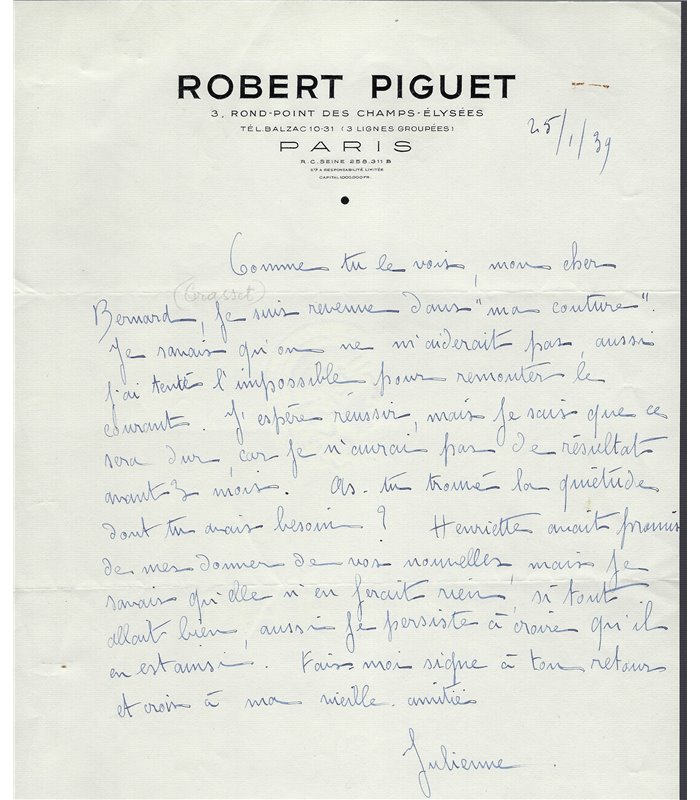 ROBERT PIGUET
3, ROND-POINT DES CHAMPS-ÉLYSÉES
TÉL. BALZAC 10-31 (3 LIGNES GROUPÉES)
PARIS
R. C. SEINE 258.311 B
Sté A RESPONSABILITÉ LIMITÉE
CAPITAL 1.000.000 FR.
25/1/39
Comme tu le vois, mon cher
(Grasset)
Bernard, je suis revenue dans "ma couture".
Je savais qu'on ne m'aiderait pas, aussi
j'ai tenté l'impossible pour remonter le
courant. J'espère réussir, mais je sais que ce
sera dur, car je n'aurai pas de résultat
avant 3 mois. As-tu trouvé la quiétude
dont tu avais besoin ? Henriette avait promis
de mes donner de vos nouvelles, mais je
savais qu'elle n'en ferait rien, si tout
allait bien, aussi je persiste à croire qu'il
en est ainsi. Fais moi signe à ton retour
et crois à ma vieille amitié
Julienne.